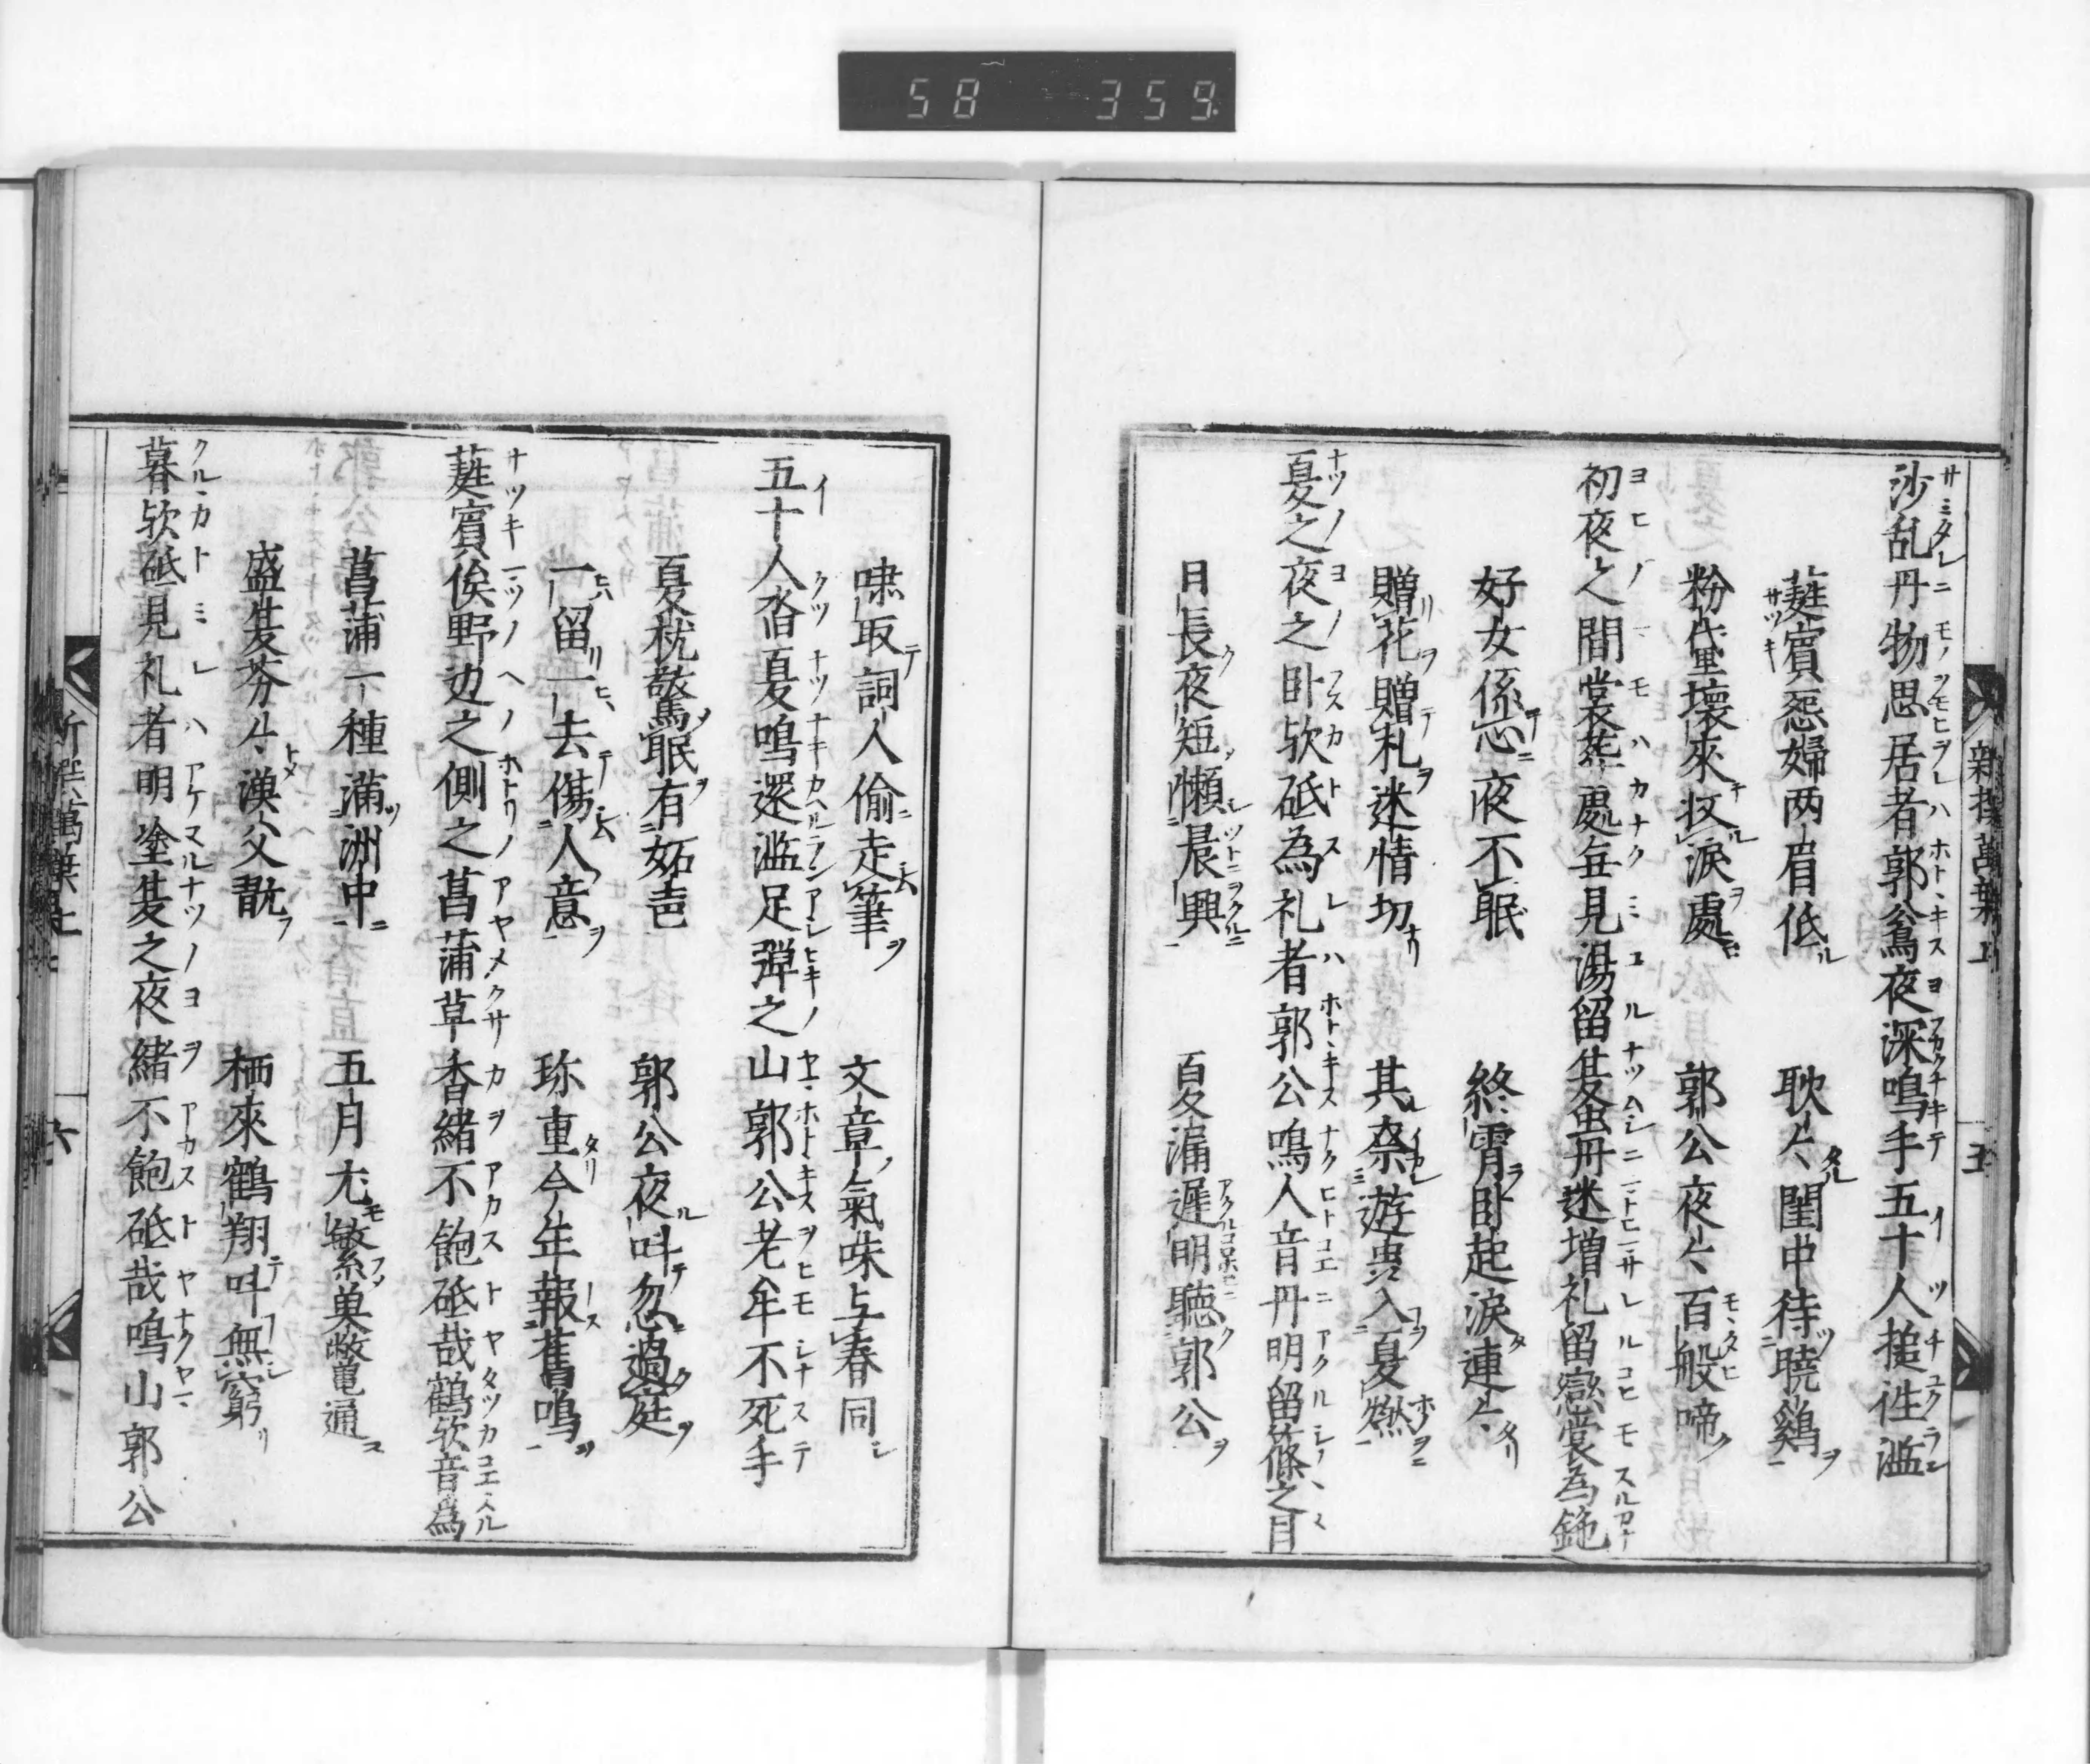 58 359
新撰萬葉上 五
沙乱丹物思居者郭公鳥夜深鳴手五十人槌往濫
蕤賓怨婦両眉低 耿々閨中待曉鷄
粉黛壞來收淚處 郭公夜々百般啼
初夜之間裳葬處毎見湯留夏虫丹迷増礼留戀裳為鉇
好女係心夜不眠 終霄臥起淚連々
贈花贈札迷情切 其奈遊虫入夏燃
夏之夜之臥欤砥為礼者郭公鳴人音丹明留篠之目
日長夜短懶晨興 夏漏遲明聽郭公
嘯取詞人偷走筆 文章氣味与春同
五十人沓夏鳴還濫足彈之山郭公老牟不死手
夏枕驚眠有妬聲 郭公夜叫忽過庭
一留一去傷人意 珍重今年報舊鳴
蕤賓俟野邊之側之菖蒲草香緒不飽砥哉鶴欤音爲
菖蒲一種滿洲中 五月尤繁魚鼈通
盛夏芬々漁父翫 栖來鶴翔叫無窮
暮欤砥見礼者明塗夏之夜緒不飽砥哉鳴山郭公
新撰萬葉上 六